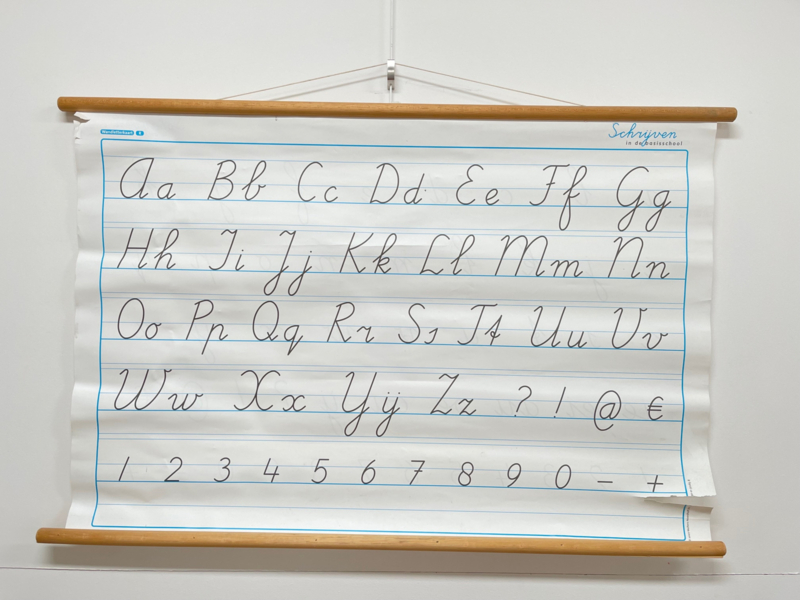 Wandletterkaart 1
Schrijven
in de basisschool
Aa Bb Cc Dd Ee Ff Gg
Hh Ii Jj Kk Ll Mm Nn
Oo Pp Qq Rr Ss Tt Uu Vv
Ww Xx Yij Zz ? ! @ €
1 2 3 4 5 6 7 8 9 0 – +